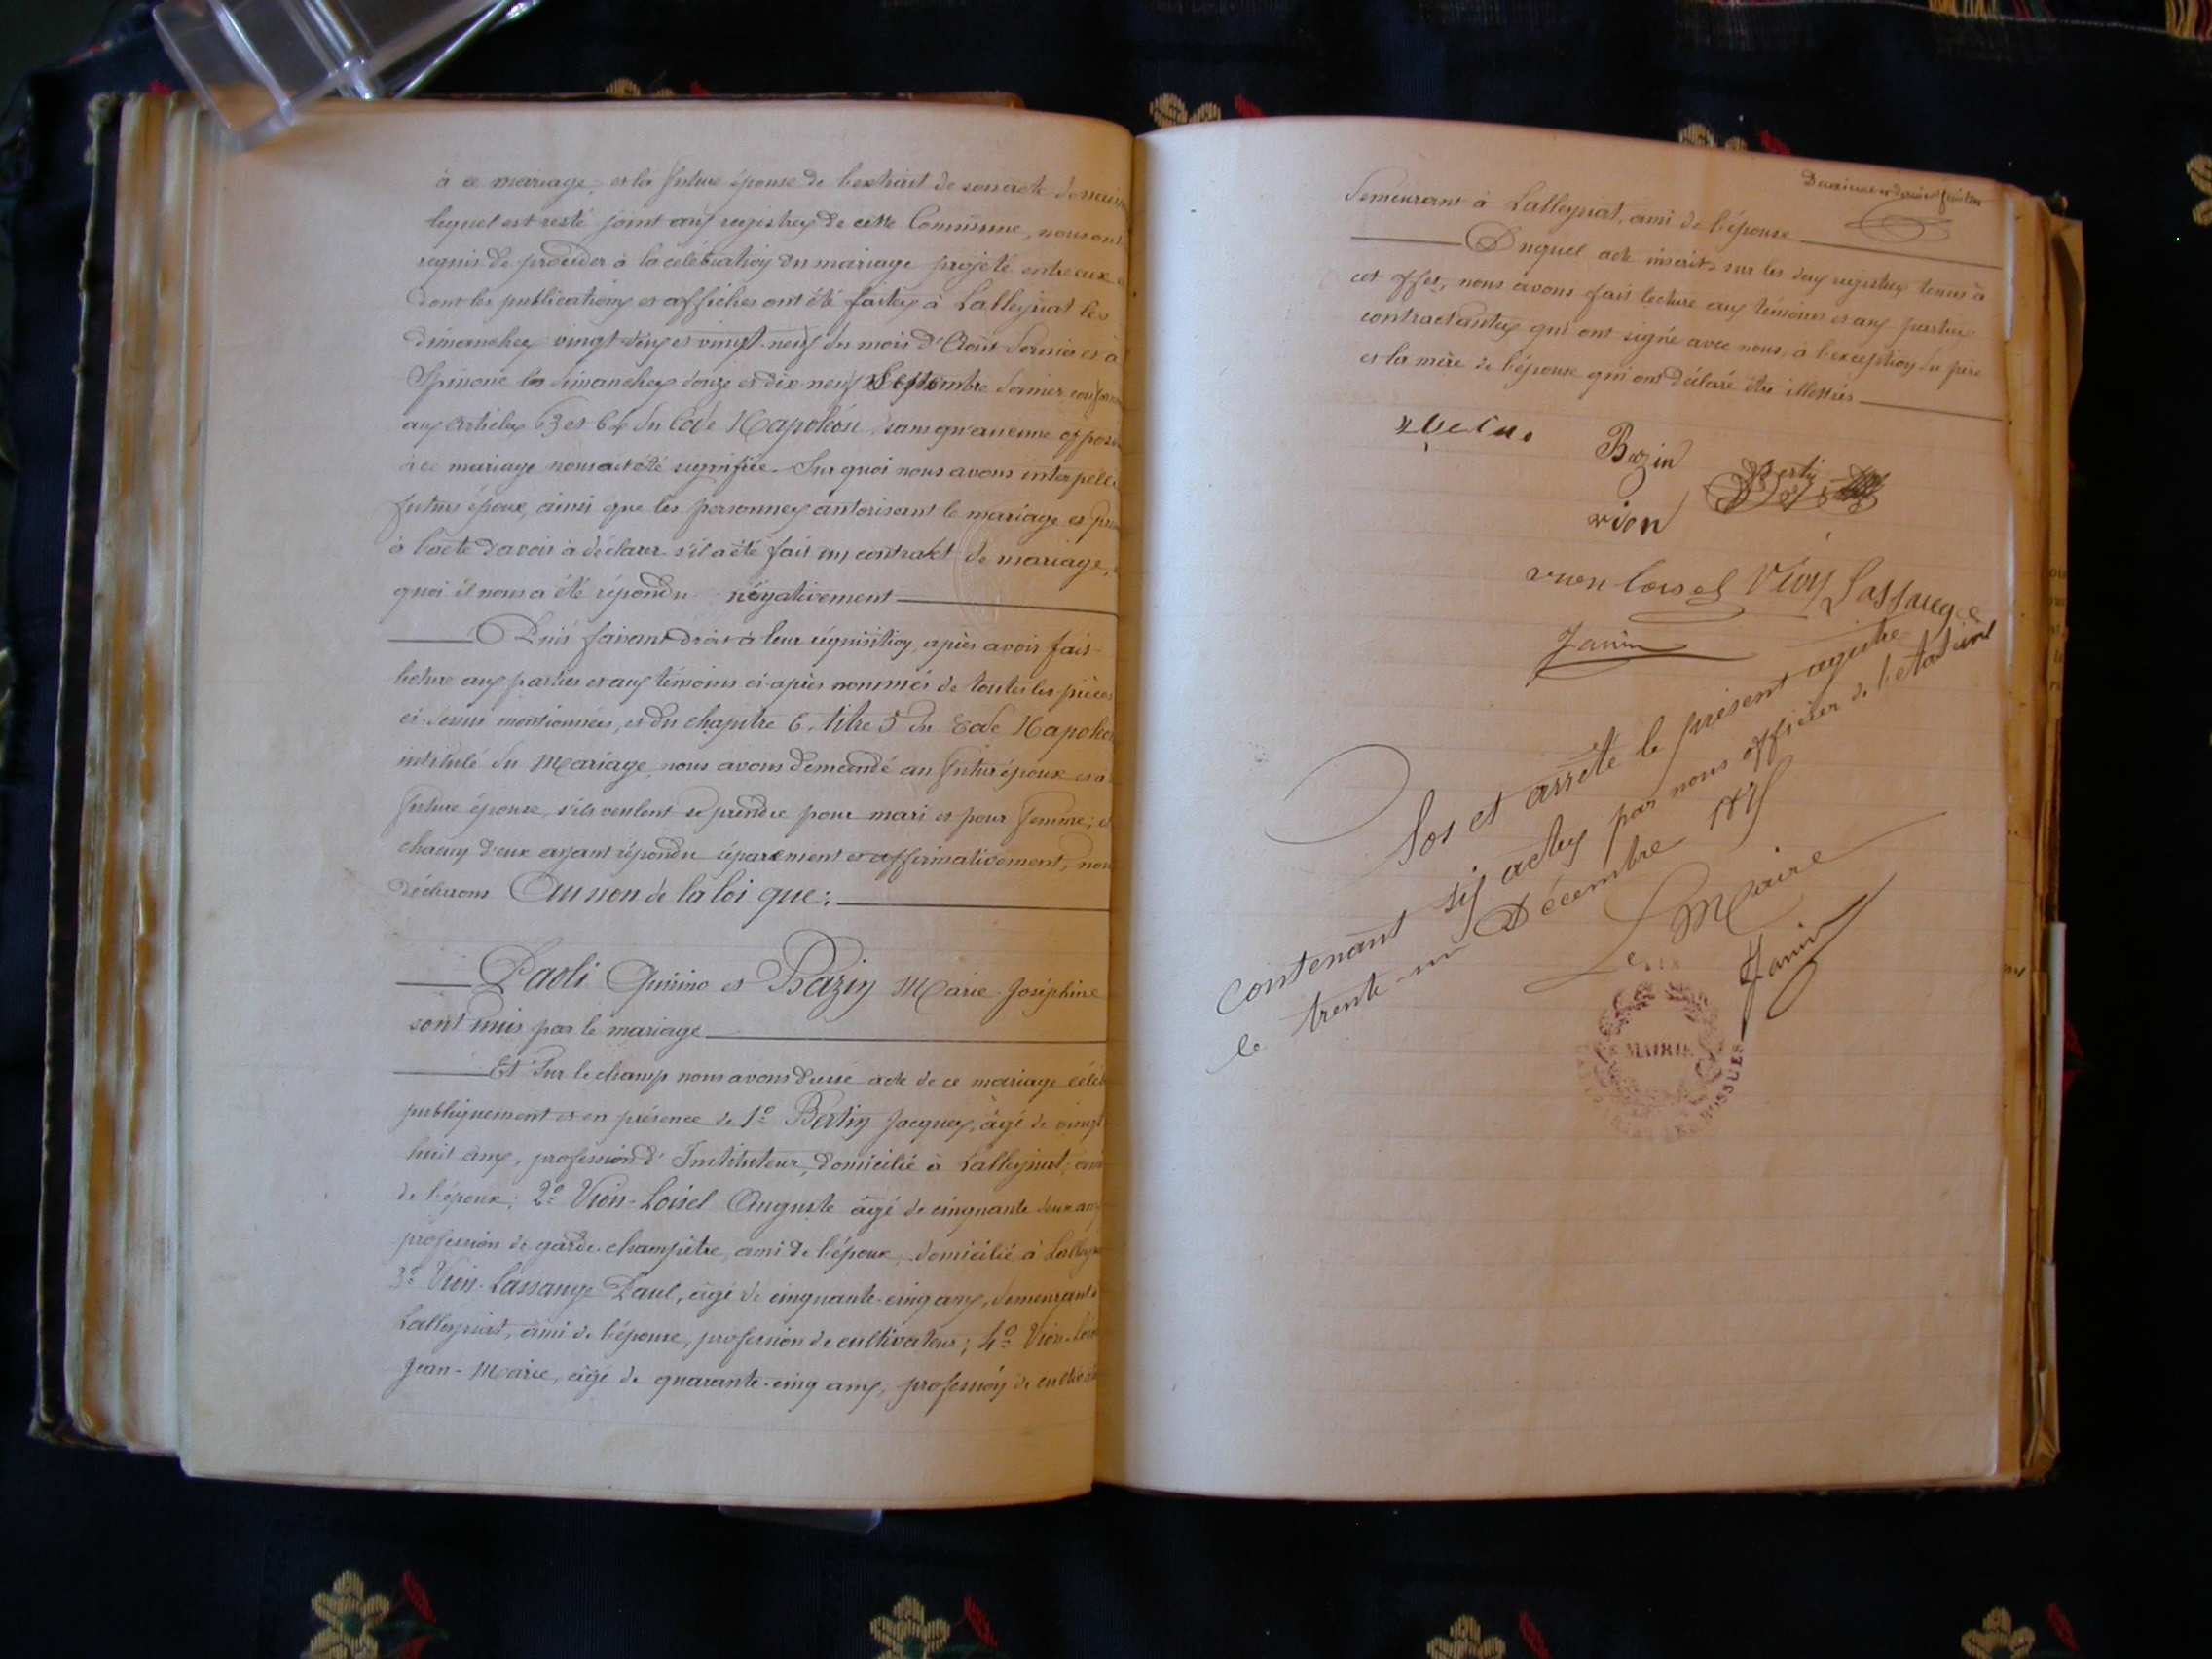 à ce mariage, et la future épouse de l'extrait de son acte de naiss
lequel est resté joint aux registres de cette Commune, nous ont
requis de procéder à la célébration du mariage projeté entre eux et
dont les publications et affiches ont été faites à Lalleyriat les
dimanches vingt-deux et vingt-neuf du mois d'Août dernier et à
Spinone les dimanches douze et dix neuf Septembre dernier conform
aux articles 63 et 64 du Code Napoléon, sans qu'aucune oppos
à ce mariage nous ait été signifiée. Sur quoi nous avons interpellé
futurs époux, ainsi que les personnes autorisant le mariage et pré
à l'acte d'avoir à déclarer s'il a été fait un contrat de mariage, à
quoi il nous a été répondu négativement
Puis faisant droit à leur réquisition, après avoir fait
lecture aux parties et aux témoins ci-après nommés de toutes les pièces
ci-dessus mentionnées, et du chapitre 6, titre 5 du Code Napoléon
intitulé du Mariage, nous avons demandé au futur époux et à
future épouse, s'ils veulent se prendre pour mari et pour femme; et
chacun d'eux ayant répondu séparément et affirmativement, nous
déclarons Au nom de la loi que:
Paoli Quirino et Bazin Marie Joséphine
sont unis par le mariage
Et sur le champ nous avons dressé acte de ce mariage céléb
publiquement et en présence de 1º Bertin Jacques, âgé de vingt
huit ans, profession d'Instituteur, domicilié à Lalleyriat, ami
de l'époux; 2º Vion-Loisel Auguste âgé de cinquante deux ans
profession de garde-champêtre, ami de l'époux, domicilié à Lalleyr
3º Vion-Lassauge Paul, âgé de cinquante-cinq ans, demeurant à
Lalleyriat, ami de l'épouse, profession de cultivateur; 4º Vion-Loi
Jean-Marie, âgé de quarante-cinq ans, profession de cultivat
Douzième et dernier feuillet
demeurant à Lalleyriat, ami de l'épouse
Duquel acte inscrit sur les deux registres tenus à
cet effet, nous avons fait lecture aux témoins et aux parties
contractantes qui ont signé avec nous, à l'exception du père
et la mère de l'épouse qui ont déclaré être illettrés
Bazin
Bertin
vion
vion loisel Vion Lassauge
Janin
Clos et arrêté le présent registre
contenant six actes par nous officier de l'état civil
le trente-un Décembre 1875
Le Maire
Janin
MAIRIE